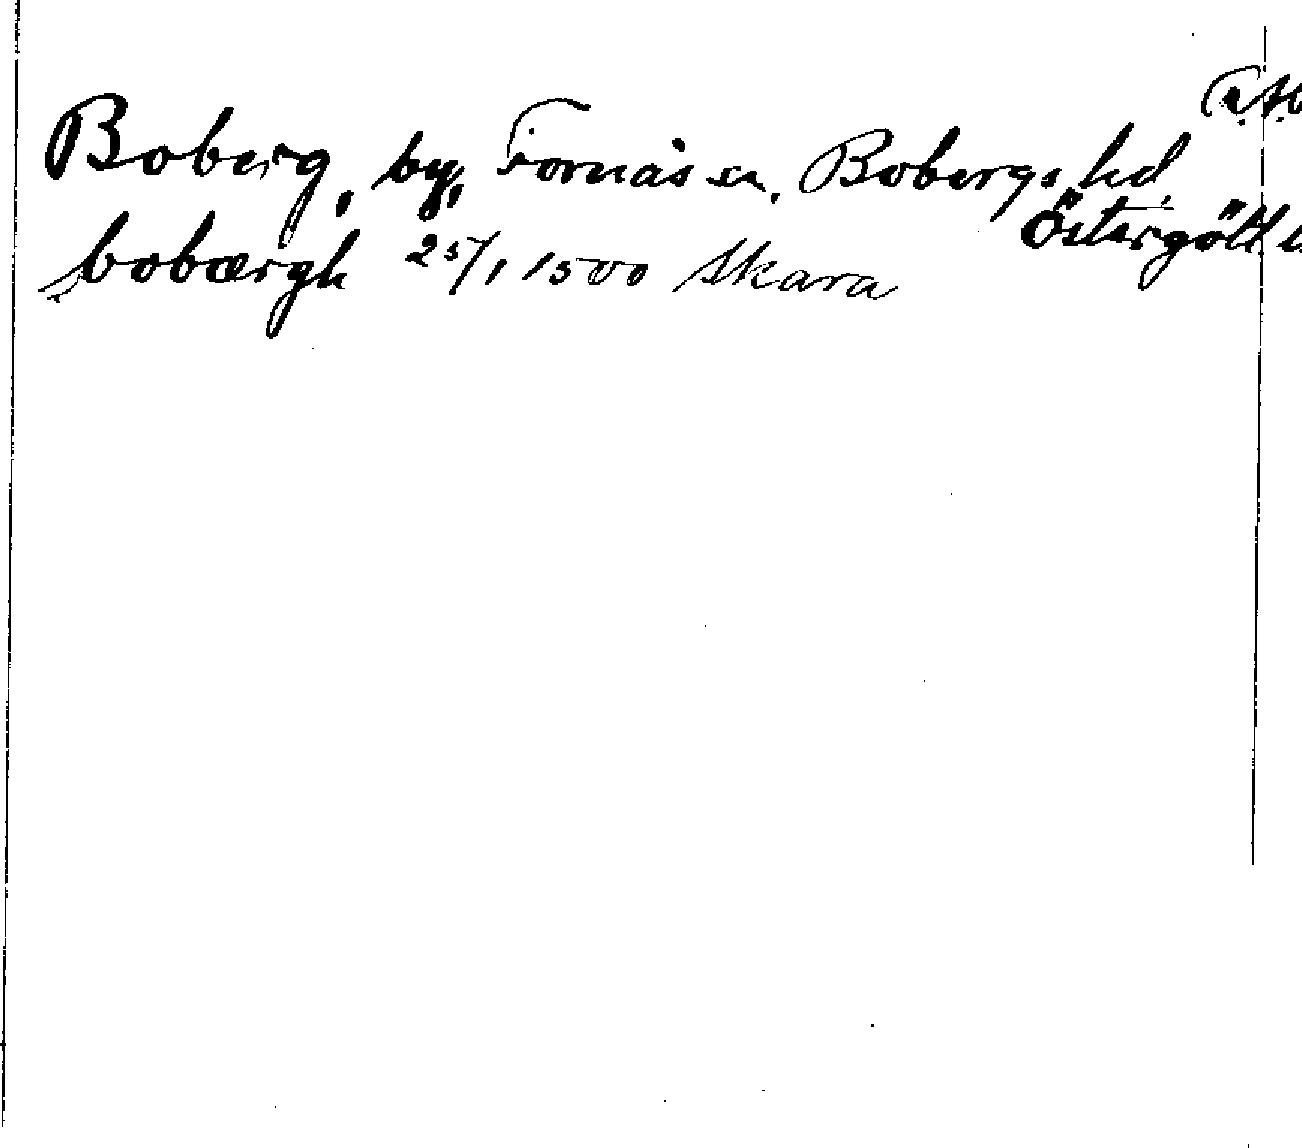 Boberg, by, Fornåsa sn, Bobergs hd,
Östergötl
bobærgh 25/1 1500 Skara